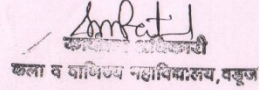 कार्यक्रम अधिकारी
कला व वाणिज्य महाविद्यालय, वडूज